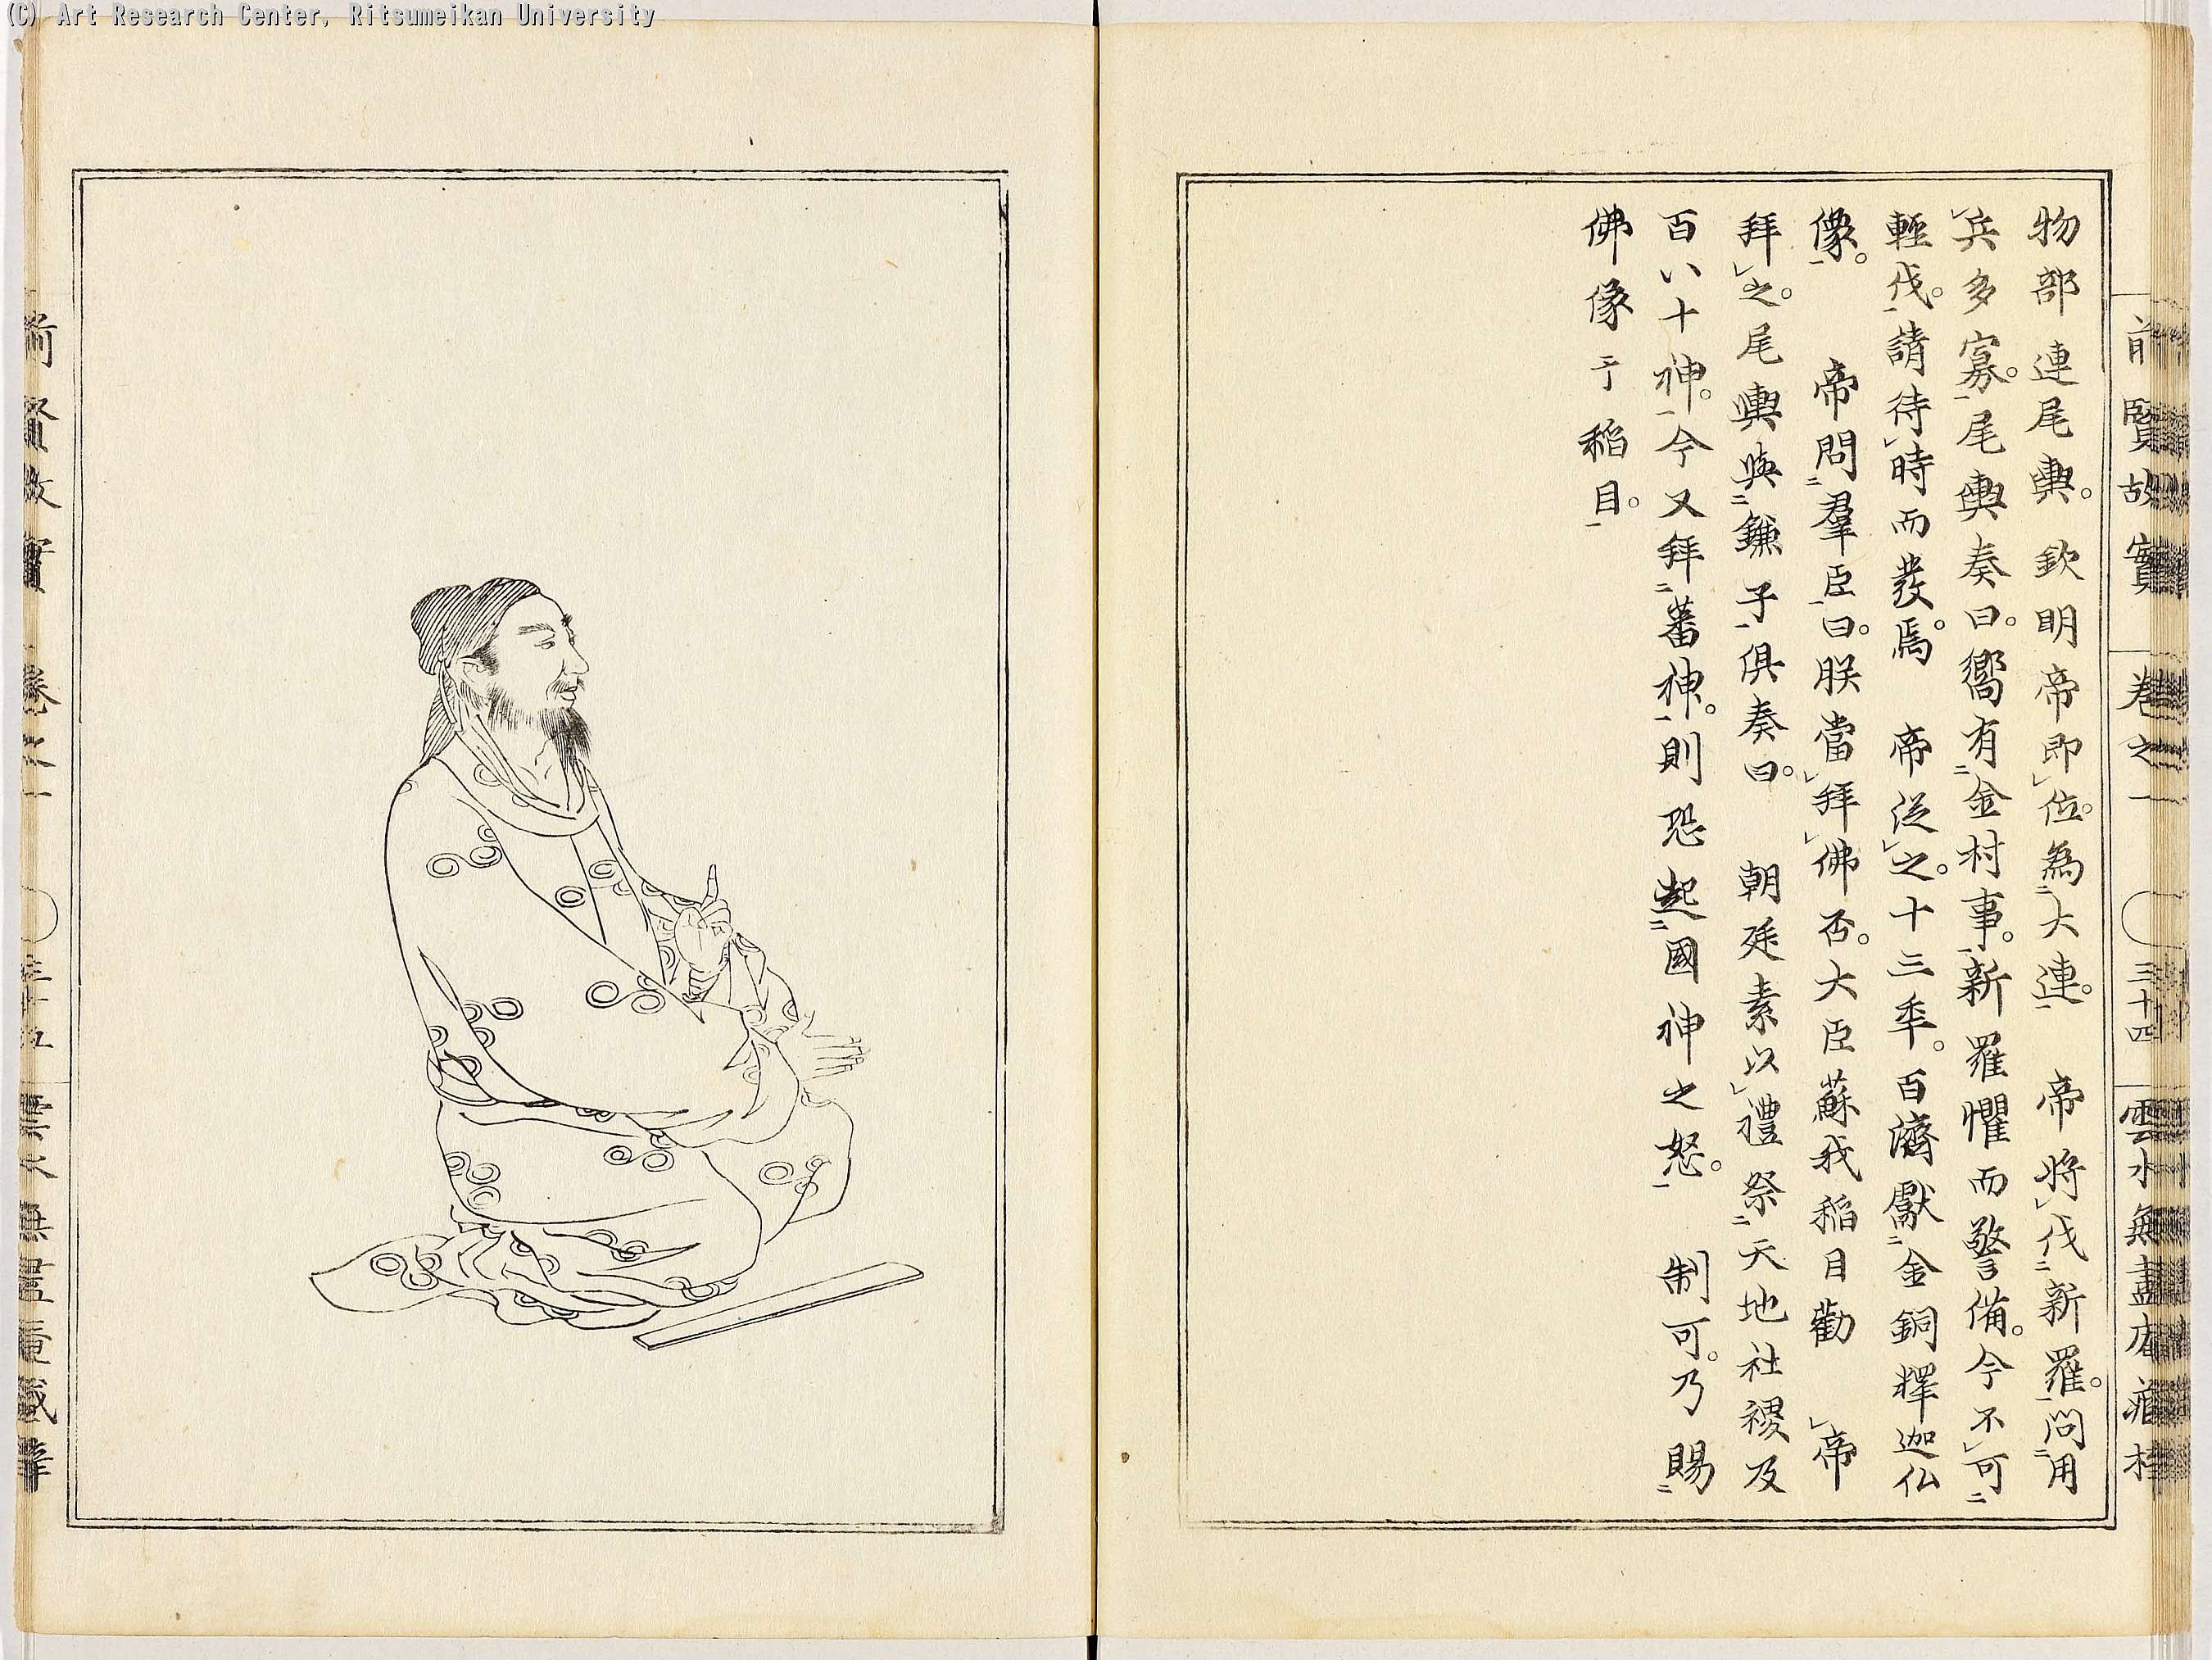 (C) Art Research Center, Ritsumeikan University
前賢故實 卷之一 三十四 雲水無盡庵
物部連尾輿。欽明帝即レ位。為二大連一。 帝將レ伐二新羅一。問二用
レ兵多寡一。尾輿奏曰。嚮有二金村事一。新羅懼而警備。今不レ可二
輕伐一。請待レ時而發焉。 帝從レ之。十三年。百濟獻二金銅釋迦仏
像一。 帝問二羣臣一曰。朕當レ拜レ佛否。大臣蘇我稲目勸 レ帝
拜レ之。尾輿與二鎌子一俱奏曰。 朝廷素以レ禮祭二天地社稷及
百八十神一。今又拜二蕃神一。則恐起二國神之怒一。 制可。乃賜二
佛像于稲目一。
前賢故實 卷之一 三十五 雲水無盡